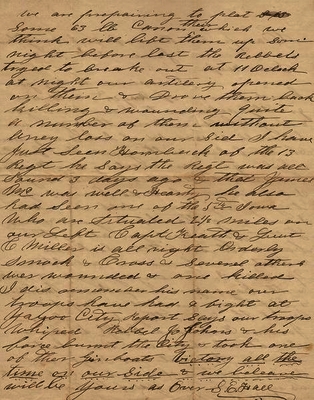 we are preparing to plat
Some 63 lb Canon there which we
think will lift them up Some
night before last the Rebbels
tryed to break out at 11 Oclock
at night our artilery opened
on them & Drove them back
killing & wounding quite
a number of them without
aney loss on our Side I have
Just Seen Hornback of the 13
Regt he Says the Regt was all
Sound 3 days ago that James
Mc was well & Hearty he also
had Seen one of the Iowa
who are Situated 2½ miles on
our Left Capt & Lieut
C Miller is all right Orderly
Smock & Cross & Several others
wer wounded & one killed
I dis remember his name our
troops have had a fight at
Yazoo City report Says our troops
Whiped & his
force burnt the City & took one
of their Gunboats Victory all the
time on our Side & we beleave
will be Yours as Ever S E Hall